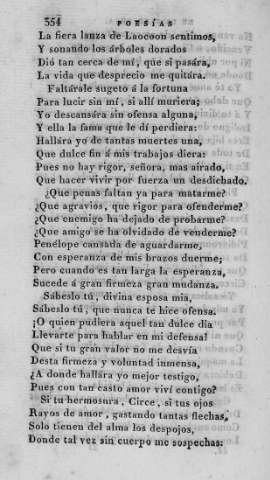 354 POESÍAS
La fiera lanza de Laocoon sentimos,
Y sonando los árboles dorados
Dió tan cerca de mí, que si pasára,
La vida que desprecio me quitára.
Faltárale sugeto á la fortuna
Para lucir sin mí, si allí muriera;
Yo descansára sin ofensa alguna,
Y ella la fama que le dí perdiera:
Hallára yo de tantas muertes una,
Que dulce fin á mis trabajos diera:
Pues no hay rigor, señora, mas airado,
Que hacer vivir por fuerza un desdichado.
¿Que penas faltan ya para matarme?
¿Que agravios, que rigor para ofenderme?
¿Que enemigo ha dejado de probarme?
¿Que amigo se ha olvidado de venderme?
Penélope cansada de aguardarme,
Con esperanza de mis brazos duerme;
Pero cuando es tan larga la esperanza,
Sucede á gran firmeza gran mudanza.
Sábeslo tú, divina esposa mia,
Sábeslo tú, que nunca te hice ofensa.
¡O quien pudiera aquel tan dulce dia
Llevarte para hablar en mi defensa!
Que si tu gran valor no me desvía
Desta firmeza y voluntad inmensa,
¿A donde hallára yo mejor testigo,
Pues con tan casto amor viví contigo?
Si tu hermosura, Circe, si tus ojos
Rayos de amor, gastando tantas flechas,
Solo tienen del alma los despojos,
Donde tal vez sin cuerpo me sospechas: